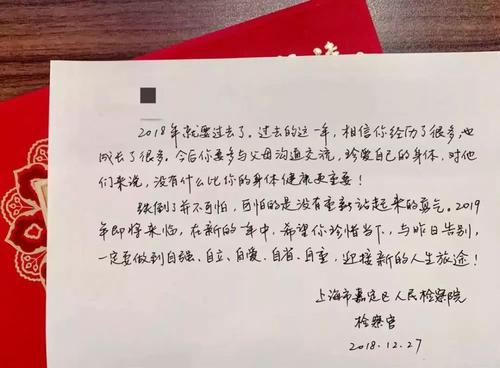 2018年就要过去了。过去的这一年，相信你经历了很多，也
成长了很多。今后你要多与父母沟通交流，珍爱自己的身体，对他
们来说，没有什么比你的身体健康更重要！
跌倒了并不可怕，可怕的是没有重新站起来的勇气。2019
年即将来临，在新的一年中，希望你珍惜当下，与昨日告别，
一定要做到自强、自立、自爱、自省、自重，迎接新的人生旅途！
上海市嘉定区人民检察院
检察官
2018.12.27